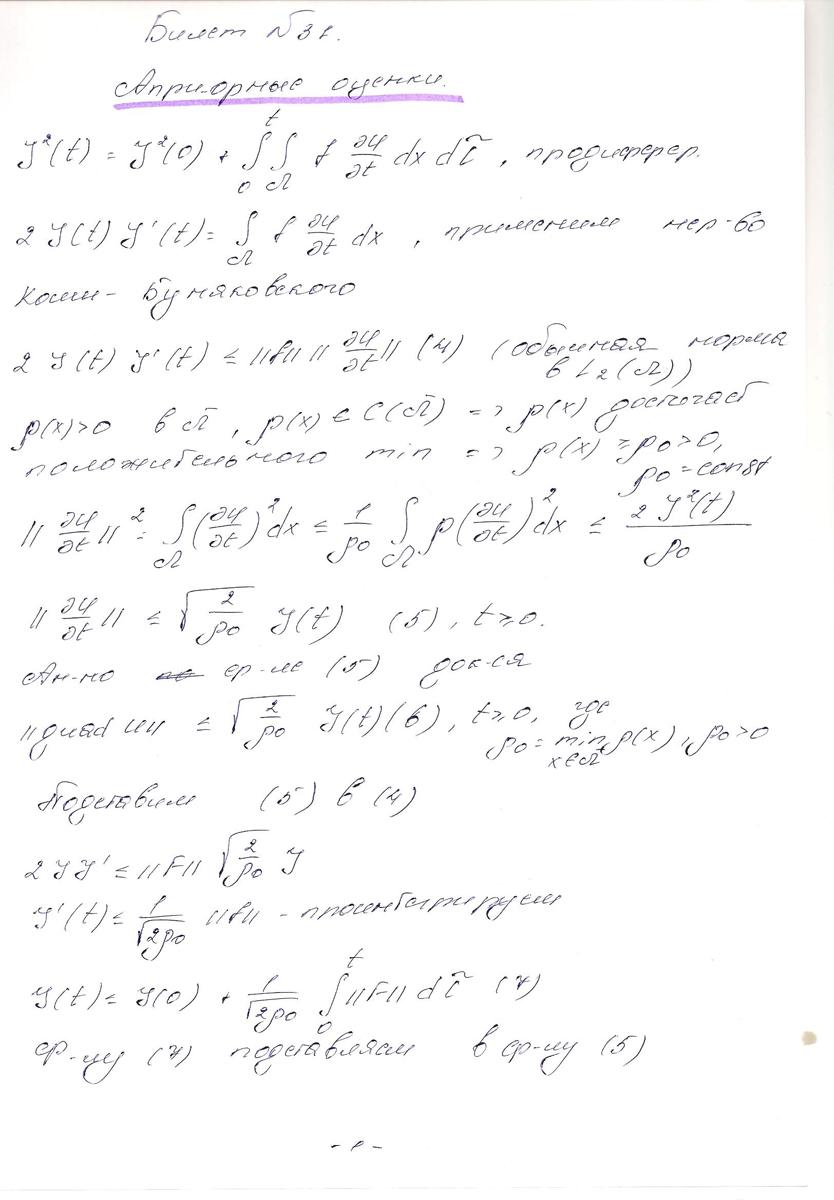 Билет №31.
Априорные оценки.
J²(t) = J²(0) + ∫₀ᵗ ∫_Ω f ∂u/∂t dx dτ, продиферер.
2 J(t) J'(t) = ∫_Ω f ∂u/∂t dx, применим нер-во
Коши - Буняковского
2 J(t) J'(t) ≤ ||f|| ||∂u/∂t|| (4) (обычная норма
в L₂(Ω))
ρ(x)>0 в Ω̄, ρ(x) ∈ C(Ω̄) => ρ(x) достигает
положительного min => ρ(x) ≥ ρ₀ > 0,
ρ₀ = const
||∂u/∂t||² = ∫_Ω (∂u/∂t)² dx ≤ 1/ρ₀ ∫_Ω ρ(∂u/∂t)² dx ≤ 2 J²(t)/ρ₀
||∂u/∂t|| ≤ √(2/ρ₀) J(t) (5), t ≥ 0.
Ан-но ф-ле (5) док-ся
||grad u|| ≤ √(2/p₀) J(t) (6), t ≥ 0, где
p₀ = min p(x), p₀ > 0
x∈Ω̄
Подставим (5) в (4)
2 J J' ≤ ||F|| √(2/ρ₀) J
J'(t) ≤ 1/√(2ρ₀) ||f|| - проинтегрируем
J(t) ≤ J(0) + 1/√(2ρ₀) ∫₀ᵗ ||F|| dτ (7)
ф-лу (7) подставляем в ф-лу (5)
- 1 -